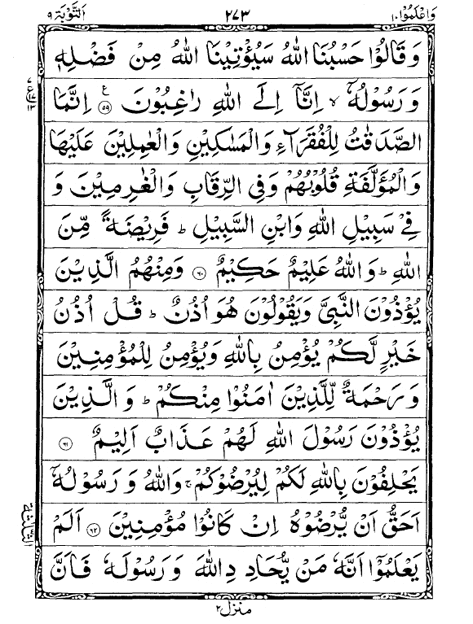 وَاعْلَمُوْٓا ١٠ ٢٧٣ اَلتَّوْبَة ٩
وَقَالُوْا حَسْبُنَا اللهُ سَيُؤْتِيْنَا اللهُ مِنْ فَضْلِهٖ
وَرَسُوْلُهٗٓ ۙ اِنَّآ اِلَى اللهِ رٰغِبُوْنَ ﴿۵۹﴾ ع اِنَّمَا
الصَّدَقٰتُ لِلْفُقَرَآءِ وَالْمَسٰكِيْنِ وَالْعٰمِلِيْنَ عَلَيْهَا
وَالْمُؤَلَّفَةِ قُلُوْبُهُمْ وَفِى الرِّقَابِ وَالْغٰرِمِيْنَ وَ
فِيْ سَبِيْلِ اللهِ وَابْنِ السَّبِيْلِ ؕ فَرِيْضَةً مِّنَ
اللهِ ؕ وَاللهُ عَلِيْمٌ حَكِيْمٌ ﴿۶۰﴾ وَمِنْهُمُ الَّذِيْنَ
يُؤْذُوْنَ النَّبِيَّ وَيَقُوْلُوْنَ هُوَ اُذُنٌ ؕ قُلْ اُذُنُ
خَيْرٍ لَّكُمْ يُؤْمِنُ بِاللهِ وَيُؤْمِنُ لِلْمُؤْمِنِيْنَ
وَرَحْمَةٌ لِّلَّذِيْنَ اٰمَنُوْا مِنْكُمْ ؕ وَالَّذِيْنَ
يُؤْذُوْنَ رَسُوْلَ اللهِ لَهُمْ عَذَابٌ اَلِيْمٌ ﴿۶۱﴾
يَحْلِفُوْنَ بِاللهِ لَكُمْ لِيُرْضُوْكُمْ ۚ وَاللهُ وَرَسُوْلُهٗٓ
اَحَقُّ اَنْ يُّرْضُوْهُ اِنْ كَانُوْا مُؤْمِنِيْنَ ﴿۶۲﴾ اَلَمْ
يَعْلَمُوْٓا اَنَّهٗ مَنْ يُّحَادِدِ اللهَ وَرَسُوْلَهٗ فَاَنَّ
منزل ٢